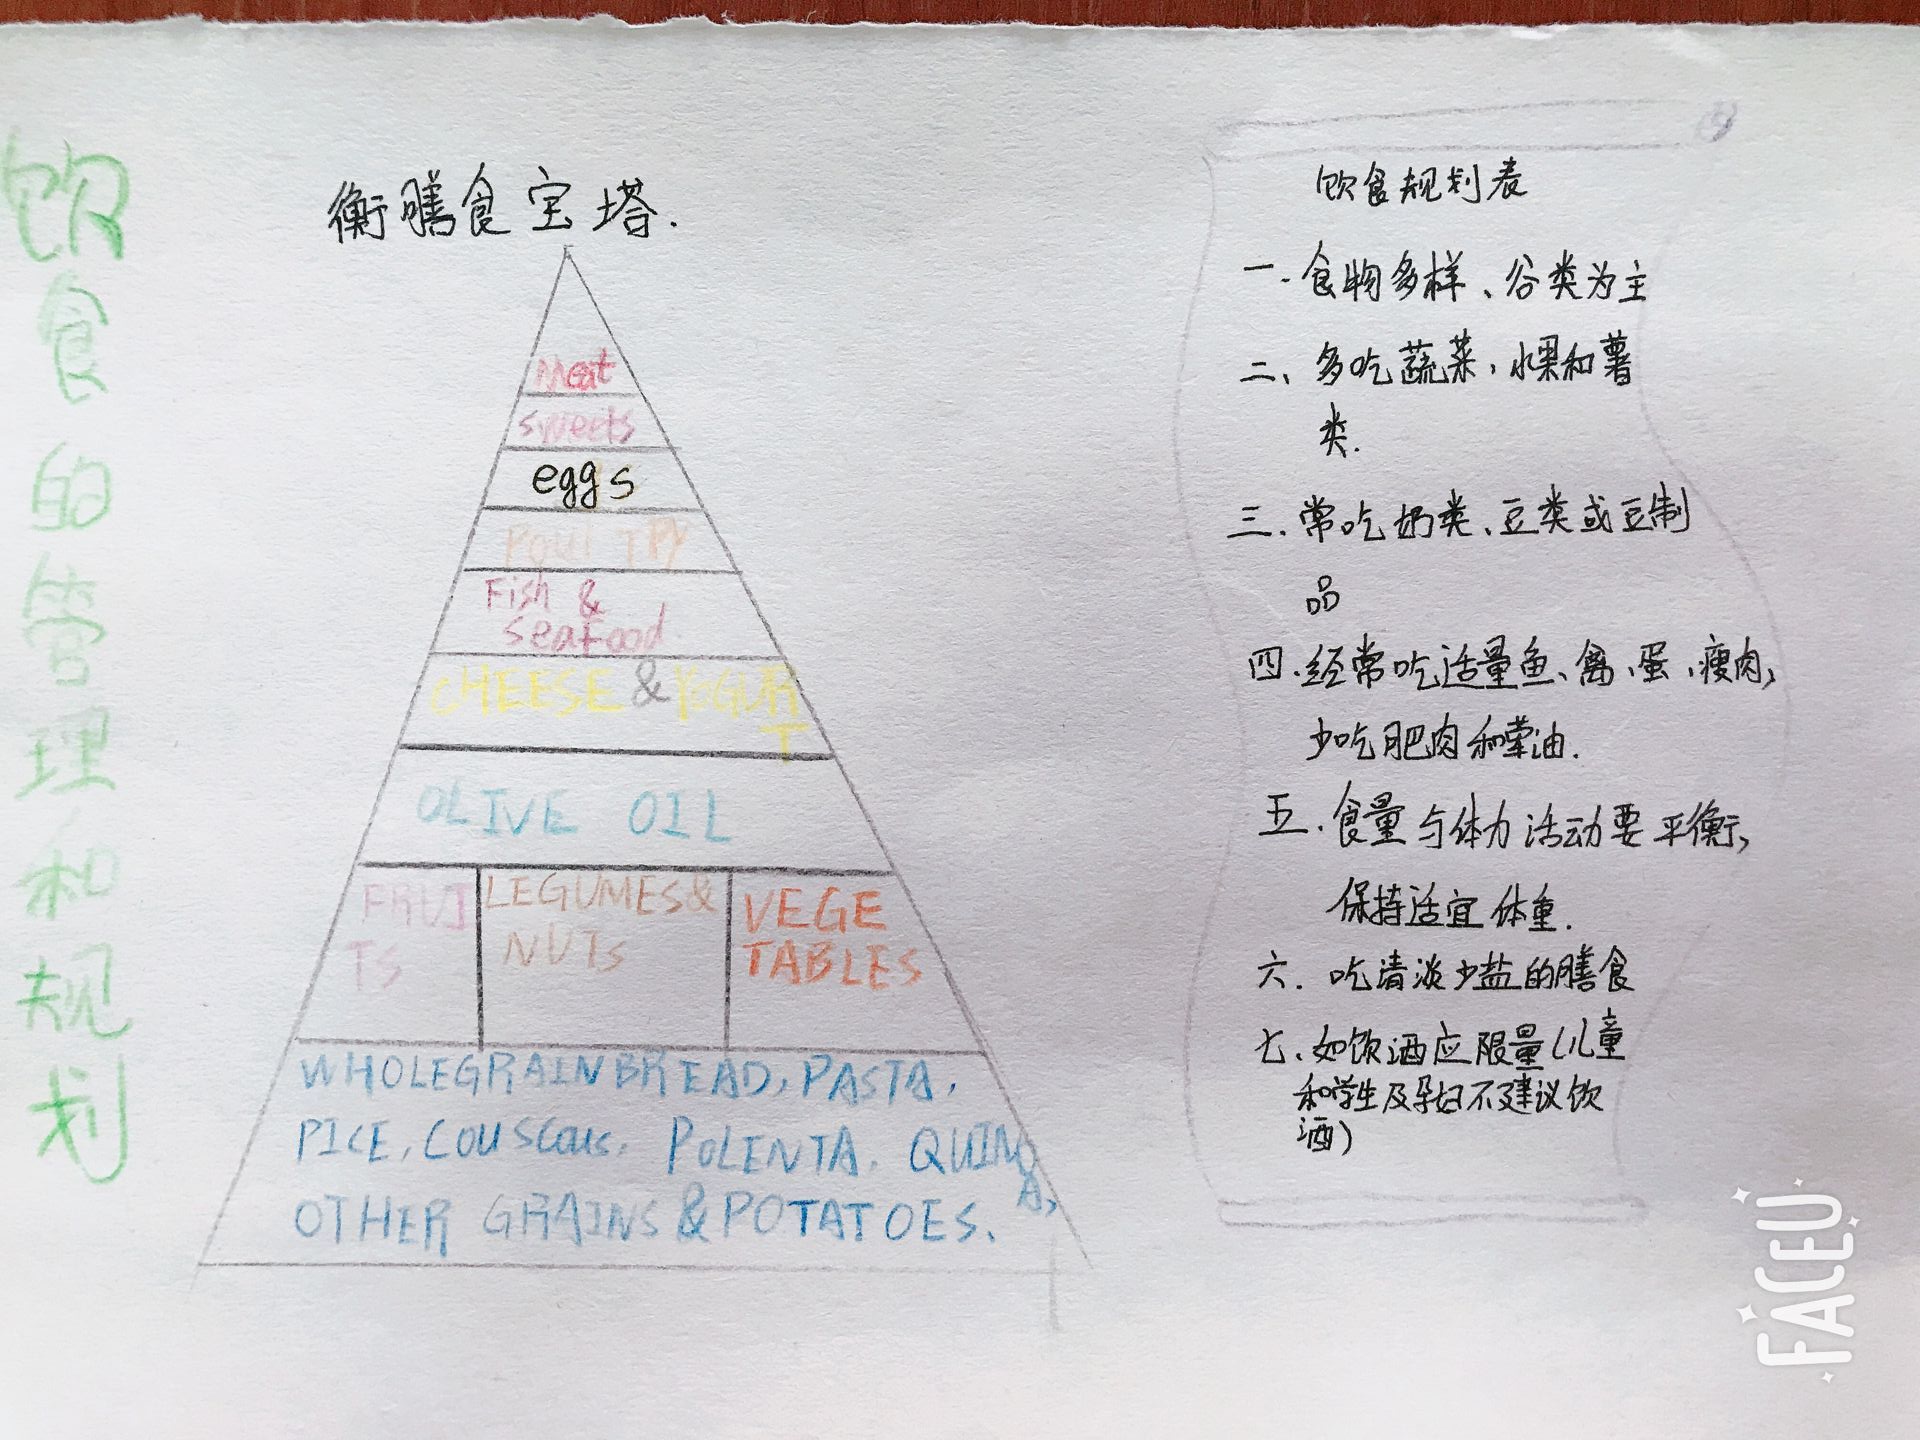 饮食的管理和规划
衡膳食宝塔.
Meat
sweets
eggs
POULTPY
Fish &
SeaFood
CHEESE & YOGUR
T
OLIVE OIL
FRUI
TS
LEGUMES&
NUTS
VEGE
TABLES
WHOLEGRAIN BREAD, PASTA,
PICE, COUSCOUS, POLENTA, QUINO
A,
OTHER GRAINS & POTATOES.
饮食规划表
一.食物多样、谷类为主
二、多吃蔬菜,水果和薯
类.
三.常吃奶类、豆类或豆制
品
四.经常吃适量鱼、禽、蛋,瘦肉,
少吃肥肉和荤油.
五.食量与体力活动要平衡,
保持适宜体重.
六.吃清淡少盐的膳食
七、如饮酒应限量(儿童
和学生及孕妇不建议饮
酒)
FACEU